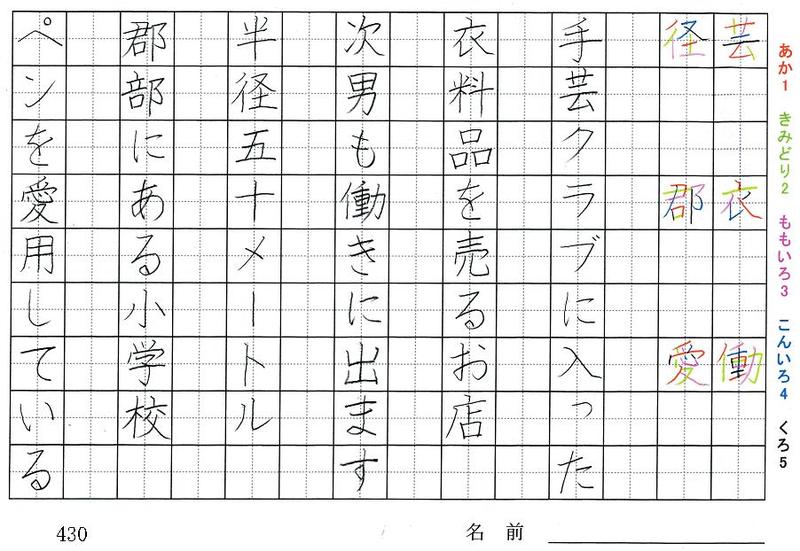 あか1 きみどり2 ももいろ3 こんいろ4 くろ5
芸 衣 働
径 郡 愛
手芸クラブに入った
衣料品を売るお店
次男も働きに出ます
半径五十メートル
郡部にある小学校
ペンを愛用している
430
名前